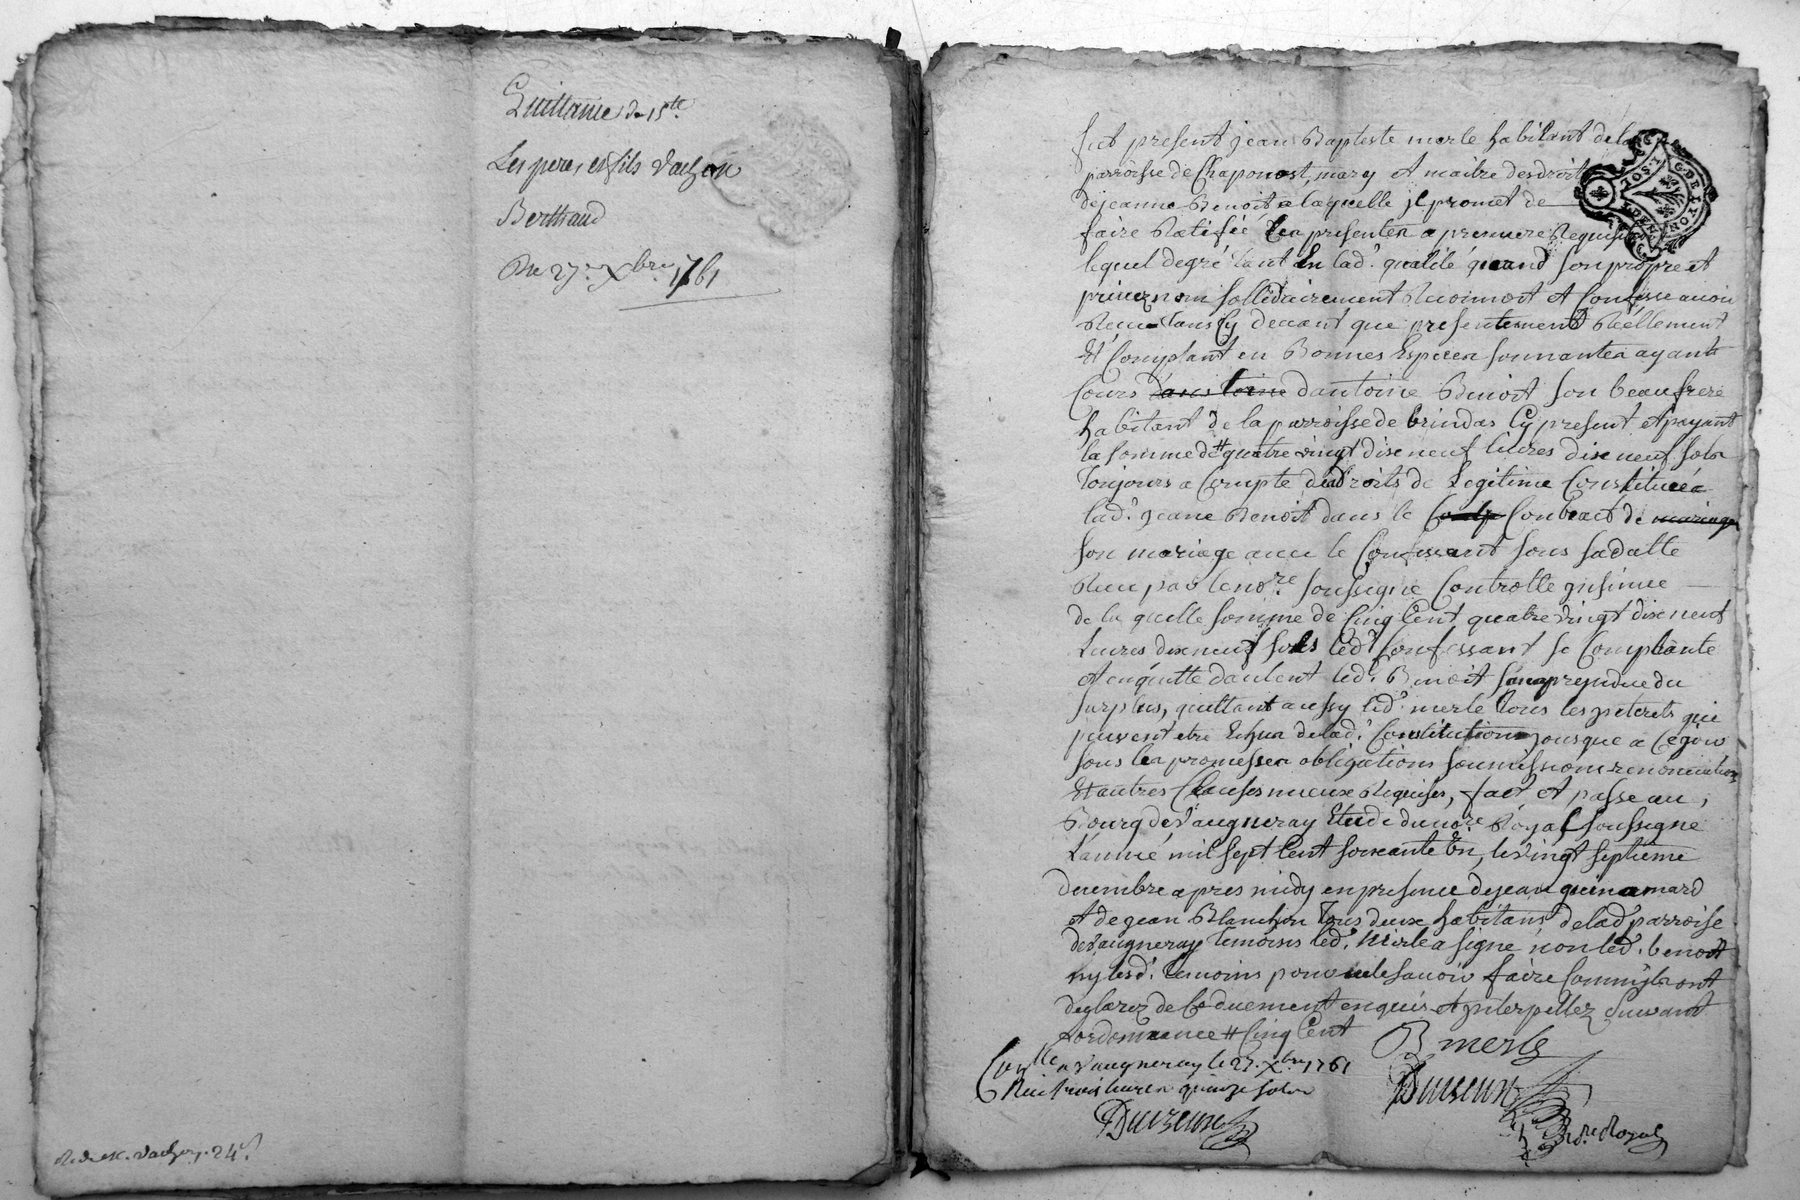 Quittance de 15tt
Les pere et fils Vachon
Bertrand
Du 27e Xbre 1761
fut present jean Baptiste merle habitant de la
parroisse de Chaponost, mary et maitre des droits
de jeanne Benoit a laquelle jl promet de
faire Ratifié Les presentes a premiere Requisition
lequel de gré tant En lad.e qualité quand son propre et
privez nom sollidairement Reconnoit et Confesse avoir
Receu tans Cy devant que presentement Réellement
Et Comptant en Bonnes Especes sonnantes ayant
Cours dantoine Benoit son beaufrere
habitant de la parroisse de brindas Cy present et payant
la somme de # quatre vingt dixeneuf livres dixeneuf sols
Toujours a Compte des droits de Legitime Constituée a
lad.e jeane Benoit dans le Contract de mariage
son mariage avec le Confessant sous sa datte
Receu par le nore soussigne Controllé jnsinué
de la quelle somme de Cinq Cent quatre vingt dixeneuf
Livres dixeneuf sols led.t Confessant se Comptante
et en quitte daulent led.t Benoit sans prejudice du
surplus, quittant aussy led.t merle Tous les jnterets qui
peuvent etre Echus de lad.e Constitution jousque a Cejour
sous les promesses obligations soumissions renonciations
Et autres Clauses mieux Requises, fait et passe au
Bourg de Vaugneray Etude du nore Royal soussigne
Lannée mil sept Cent soixante Un, le vingt septieme
decembre apres midy en presence de jean guinamard
et de jean Blanchon Tous deux habitans de lad.e parroisse
de Vaugneray temoins led.t Merle a signé non led.t benoit
ny lesd.t temoins pour ne le savoir faire Comm'jls ont
declarez de Ce duement enquis et jnterpellez suivant
Lordonnance # Cinq Cent
Conlle a Vaugneray le 27. Xbre 1761
Receu trois livres quinze sols
B merle
Duizeux
Duizeux
nore Royal